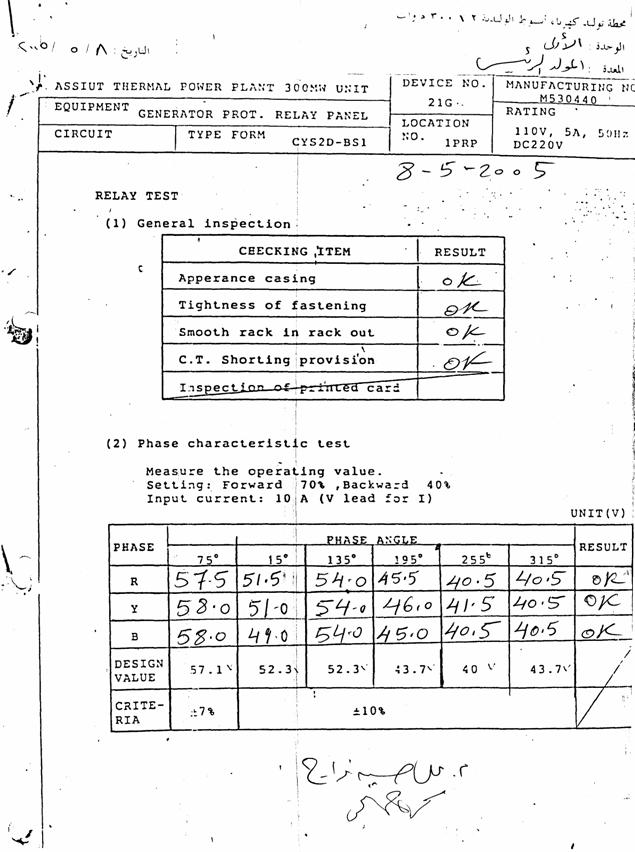 محطة توليد كهرباء أسيوط الوليدية ٢ × ٣٠٠ م وات
الوحدة : الأولى
التاريخ : ٨ / ٥ / ٢٠٠٥
المعدة : المولد الرئيسى
ASSIUT THERMAL POWER PLANT 300MW UNIT
DEVICE NO.
21G
MANUFACTURING NO
M530440
EQUIPMENT GENERATOR PROT. RELAY PANEL
LOCATION
NO. 1PRP
RATING
110V, 5A, 50Hz
DC220V
CIRCUIT
TYPE FORM
CYS2D-BS1
8-5-2005
RELAY TEST
(1) General inspection
CHECKING ITEM RESULT
Apperance casing OK
Tightness of fastening OK
Smooth rack in rack out OK
C.T. Shorting provision OK
Inspection of printed card
(2) Phase characteristic test
Measure the operating value.
Setting: Forward 70% ,Backward 40%
Input current: 10 A (V lead for I)
UNIT(V)
PHASE PHASE ANGLE RESULT
75° 15° 135° 195° 255° 315°
R 57.5 51.5 54.0 45.5 40.5 40.5 OK
Y 58.0 51.0 54.0 46.0 41.5 40.5 OK
B 58.0 49.0 54.0 45.0 40.5 40.5 OK
DESIGN VALUE 57.1 52.3 52.3 43.7 40 43.7
CRITE-RIA ±7% ±10%